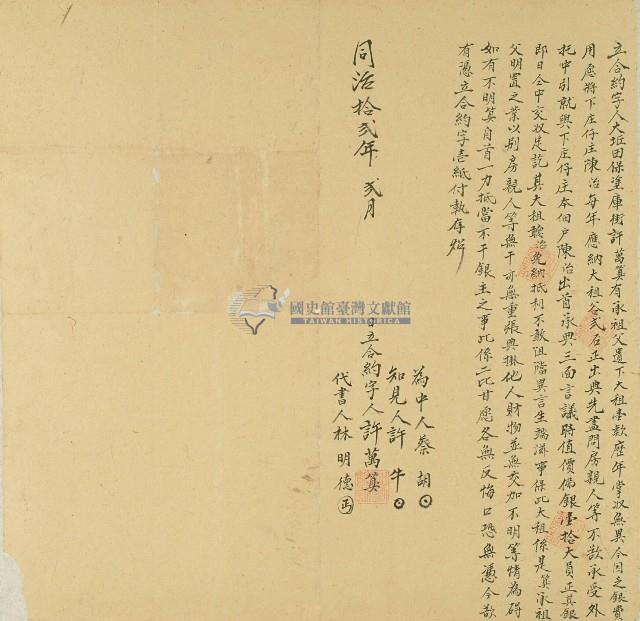 立合約字人大坵田保塗庫街許萬箕有承祖父遺下大租壹款歷年掌收無異今因乏銀費
用愿將下庄仔庄陳治每年應納大租谷弍石正出典先盡問房親人等不欲承受外
托中引就與下庄仔庄本佃戶陳治出首承典三面言議時值價佛銀壹拾大員正其銀
即日仝中交收足訖其大租聽治免納抵利不敢阻擋異言生端滋事保此大租係是箕承祖
父明置之業以別房親人等無干亦無重張典掛他人財物並無交加不明等情為碍
如有不明箕自首一力抵當不干銀主之事此係二比甘愿各無反悔口恐無憑今欲
有憑立合約字壹紙付執存炤
為中人蔡胡
知見人許牛
日立合約字人許萬箕
代書人林明德
同治拾弍年弍月
國史館臺灣文獻館
TAIWAN HISTORICA